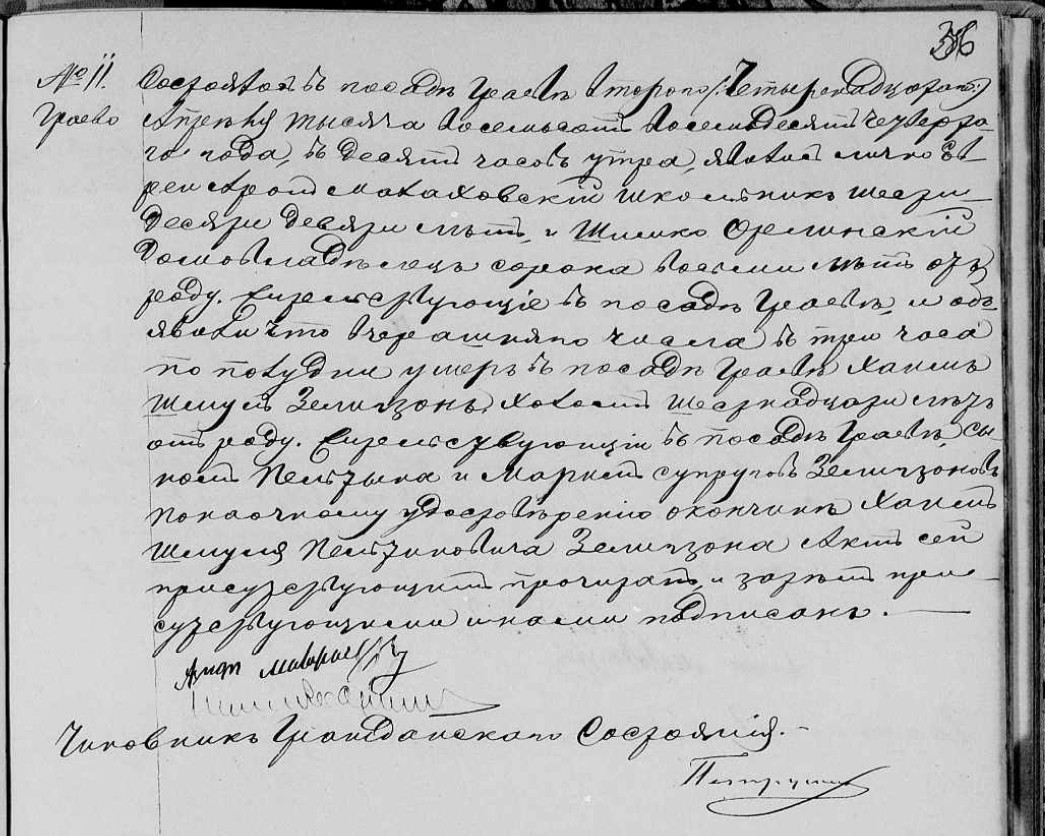 36
№ 11.
Граево
Состоялось въ посадѣ Граевѣ второго /:Четырнадцатаго:/
Апрѣля тысяча восемьсотъ восемьдесятъ четверта-
го года, въ десять часовъ утра, явились лично
школьникъ шести-
десяти девяти лѣтъ, и Шлиомко Орлинскій
домовладѣлецъ сорока восьми лѣтъ отъ
роду. Жительствующіе въ посадѣ Граевѣ, и объ-
явили что вчерашняго числа въ три часа
по полудни умеръ въ посадѣ Граевѣ Хаимъ
Шмуль Зелигзонъ, холостъ шестнадцати лѣтъ
отъ роду. Жительствующій въ посадѣ Граевѣ, сы-
номъ и супруговъ Зелигзоновъ
По наочному удостовѣренію о кончинѣ Хаимъ
Шмуля Зелигзона Актъ сей
присутствующимъ прочитанъ и затѣмъ при-
сутствующими и нами подписанъ.
Чиновникъ Гражданскаго Состоянія.